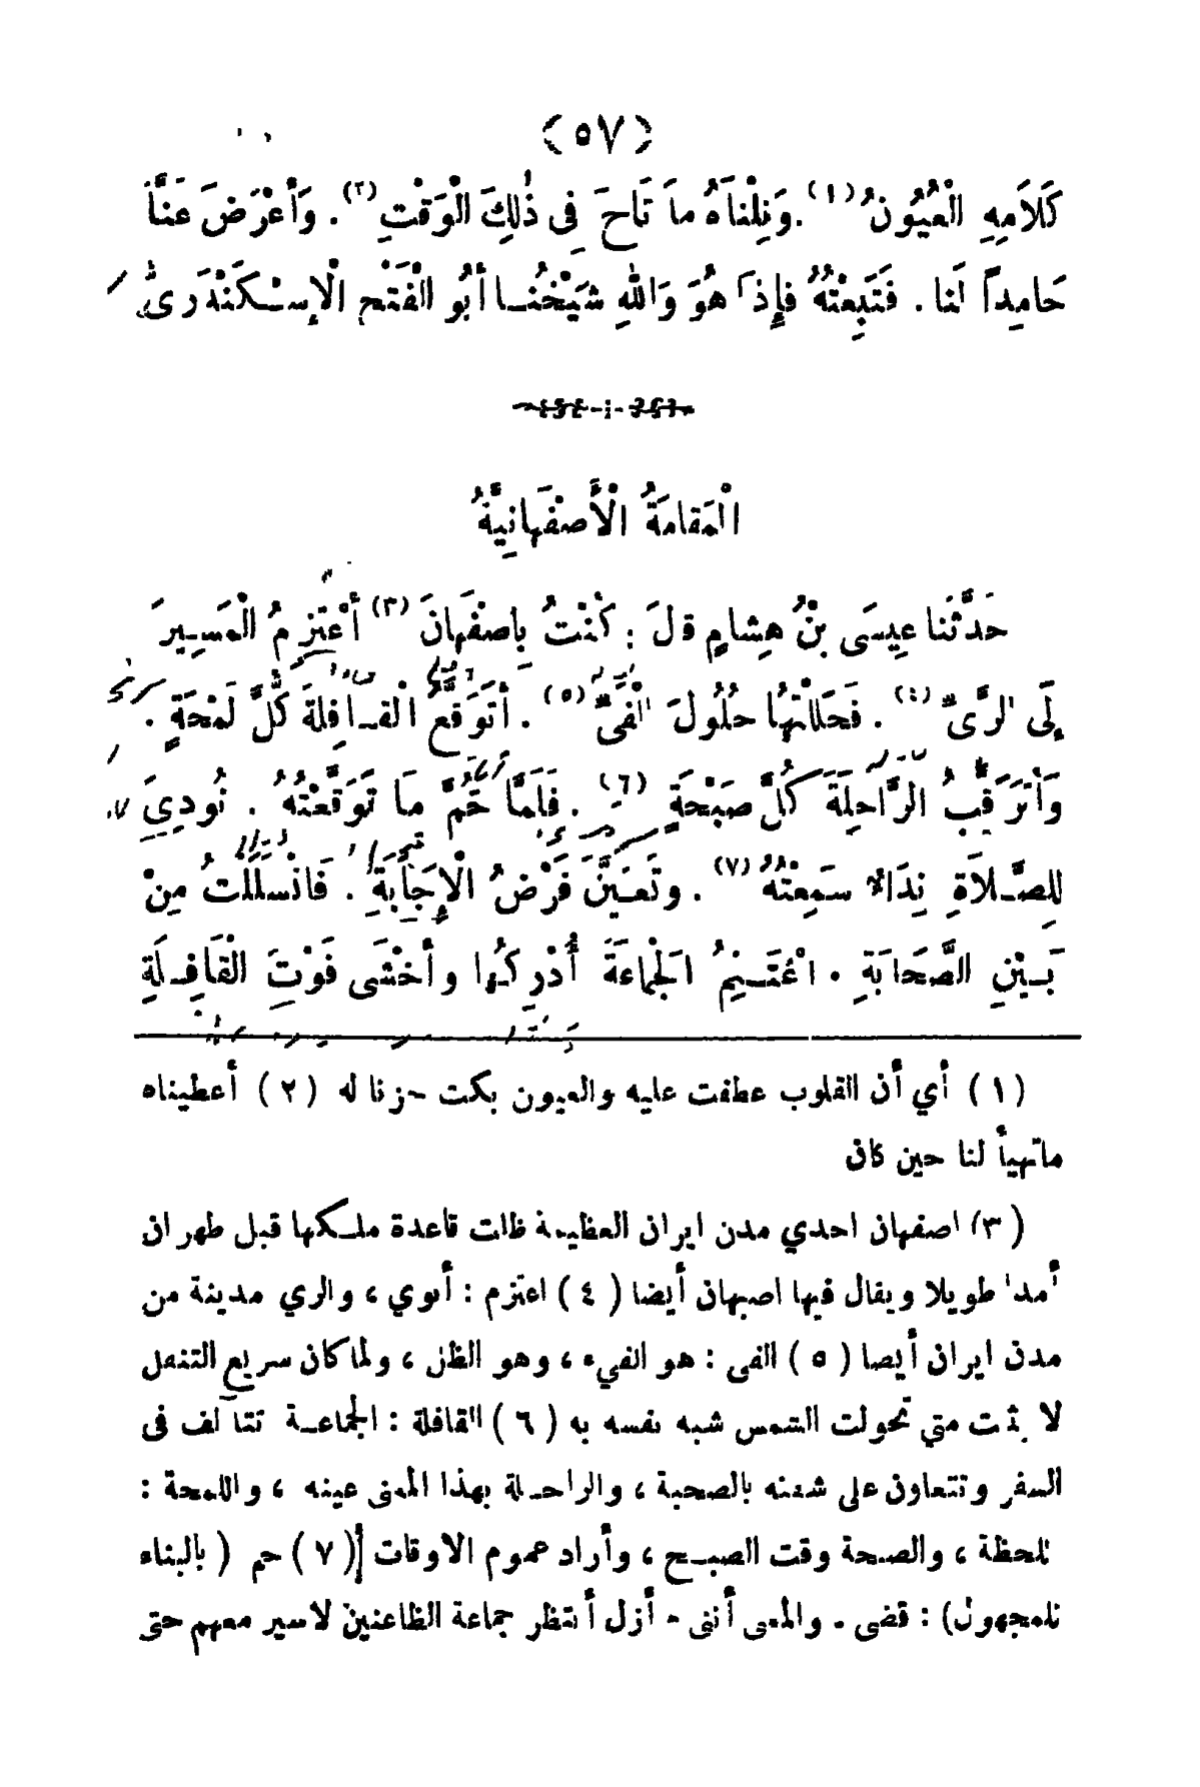 (٥٧)
كَلَامِهِ الْعُيُونُ(١). وَنِلْنَاهُ ما تَاحَ فِى ذٰلِكَ الْوَقْتِ(٢). وَأَعْرَضَ عَنَّا
حَامِداً لَنا. فَتَبِعْتُهُ فإِذا هُوَ وَاللهِ شَيْخُنا أبُو الْفَتْحِ الْإِسْكَنْدَرِىُّ
الْمَقامَةُ الْأَصْفَهانِيَّةُ
حَدَّثَنا عِيسَى بْنُ هِشامٍ قالَ: كُنْتُ بِاصْفَهانَ(٣) أَعْتَزِمُ الْمَسِيرَ
إِلَى الرَّىِّ(٤). فَحَلَلْتُها حُلُولَ الْفَىِّ(٥). أَتَوَقَّعُ الْقَافِلةَ كُلَّ لَمْحَةٍ.
وَأَتَرَقَّبُ الرَّاحِلَةَ كُلَّ صَبْحَةٍ(٦). فَلَمَّا حُمَّ مَا تَوَقَّعْتُهُ. نُودِيَ
لِلصَّلَاةِ نِدَاءً سَمِعْتُهُ(٧). وتَعَيَّنَ فَرْضُ الْإِجَابَةِ. فَانْسَلَلْتُ مِنْ
بَيْنِ الصَّحَابَةِ. اغْتَنِمُ الْجَمَاعَةَ أُدْرِكُها وأَخْشَى فَوْتَ الْقَافِلَةِ
(١) أي أن القلوب عطفت عليه والعيون بكت حزنا له (٢) أعطيناه
ماتهيأ لنا حين كان
(٣) اصفهان احدي مدن ايران العظيمة ظلت قاعدة ملكها قبل طهران
أمدا طويلا ويقال فيها اصبهان أيضا (٤) اعتزم: أنوي، والري مدينة من
مدن ايران أيضا (٥) الفى: هو الفيء، وهو الظل، ولما كان سريع التنقل
لا يثبت متي تحولت الشمس شبه نفسه به (٦) القافلة: الجماعة تتآلف فى
السفر وتتعاون على مشقته بالصحبة، والراحلة بهذا المعنى عينه، واللمحة:
اللحظة، والصبحة وقت الصبح، وأراد عموم الاوقات (٧) حم (بالبناء
للمجهول): قضى. والمعنى أننى لم أزل أنتظر جماعة الظاعنين لاسير معهم حتى